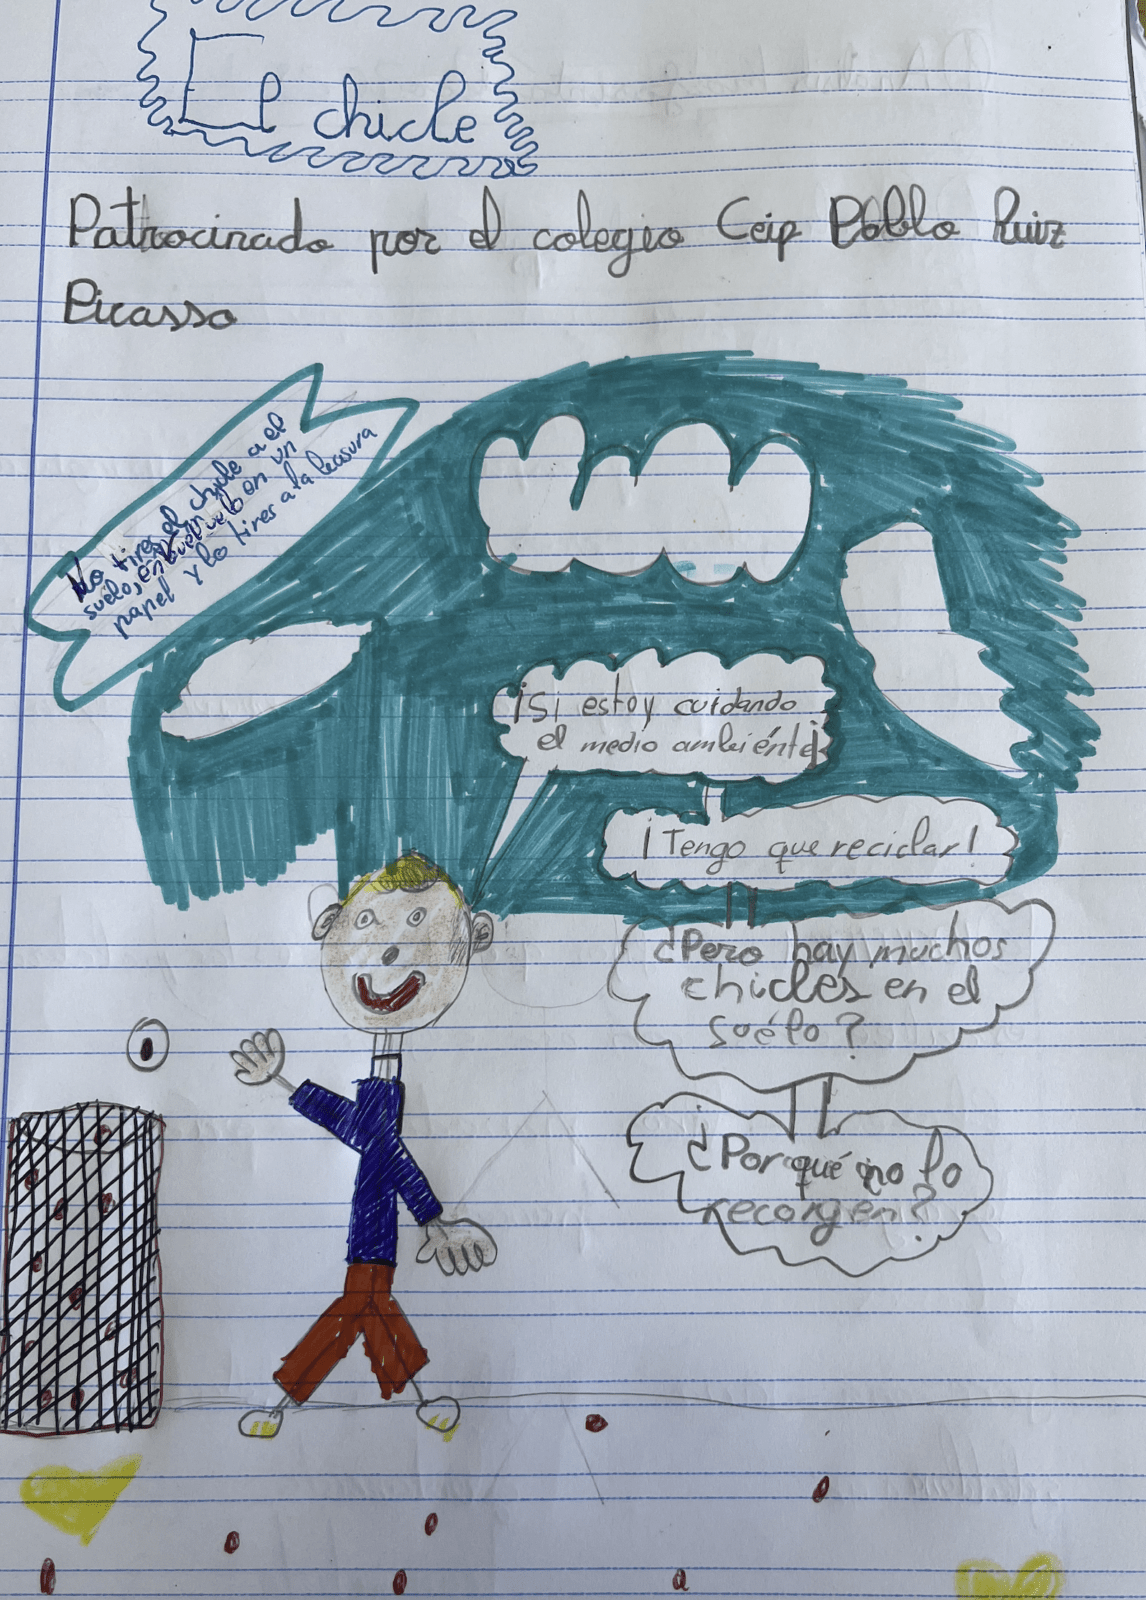 El chicle
Patrocinado por el colegio Ceip Pablo Ruiz
Picasso
No tires el chicle a el
suelo, en un
papel y lo tires a la basura
¡Si estoy cuidando
el medio ambiénte¡
¡Tengo que reciclar!
¿Pero hay muchos
chicles en el
suélo?
¿Por qué no lo
recorgen?